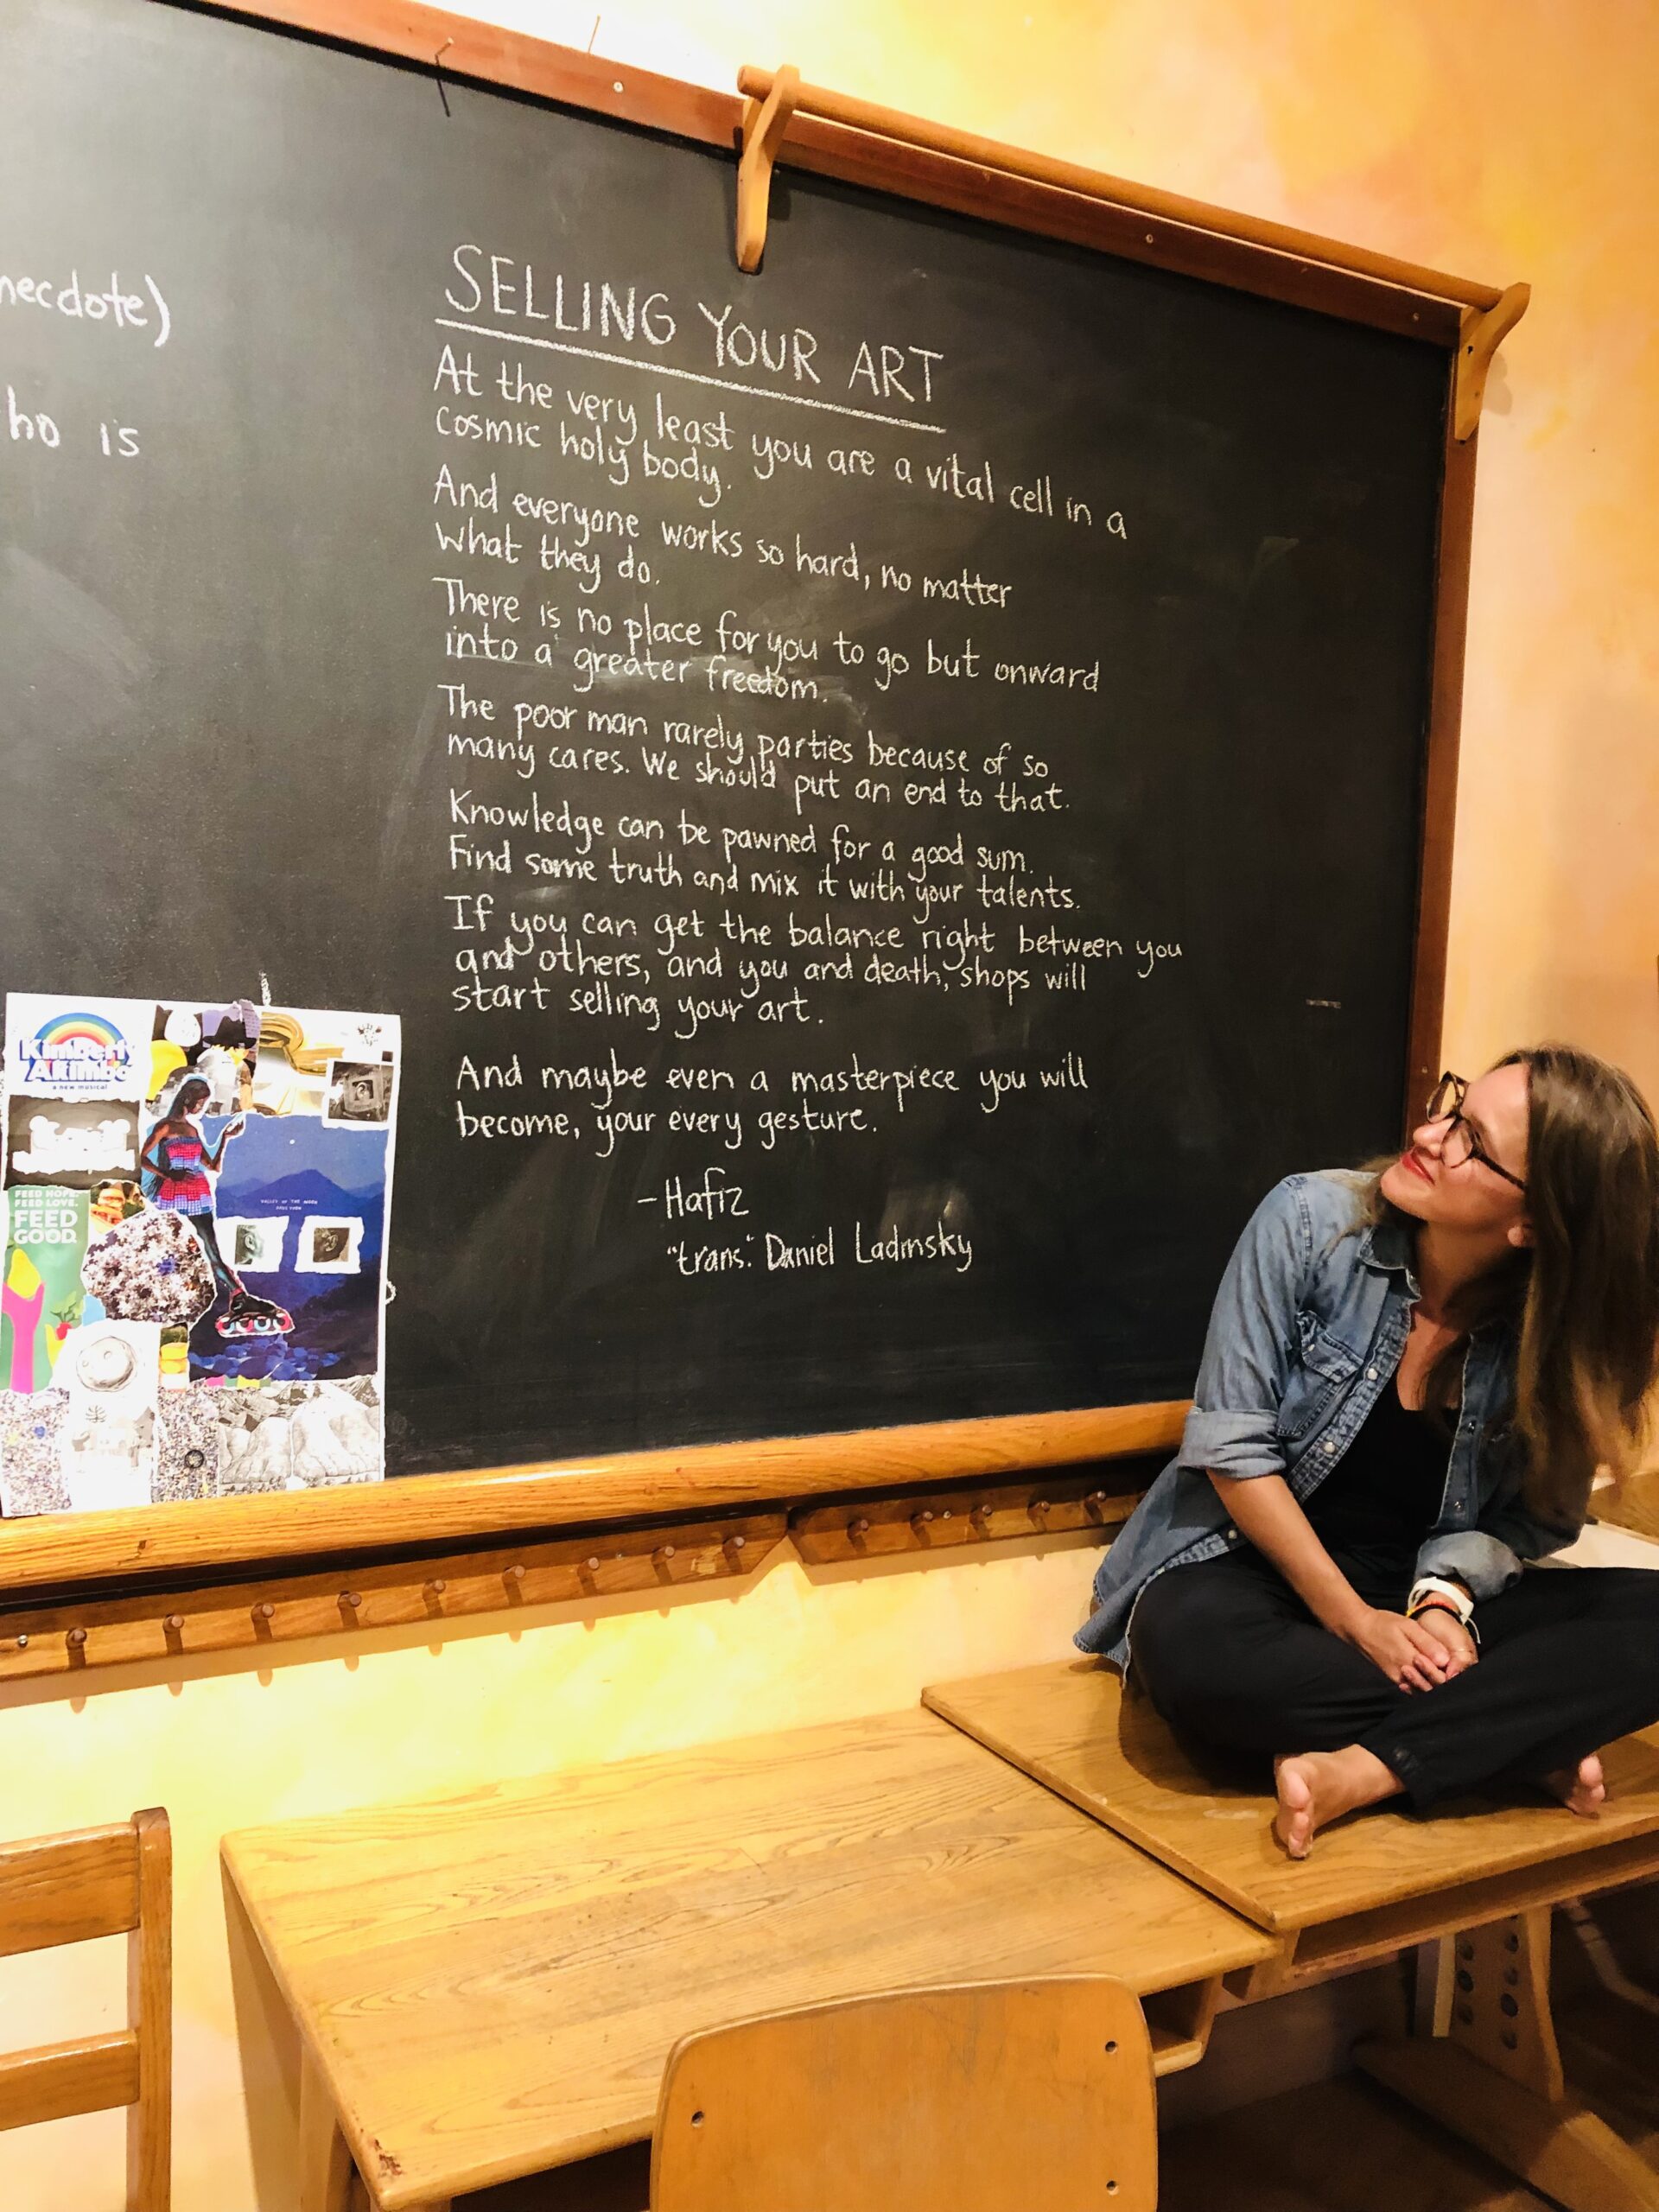 necdote)
ho is
SELLING YOUR ART
At the very least you are a vital cell in a
cosmic holy body.
And everyone works so hard, no matter
what they do.
There is no place for you to go but onward
into a greater freedom.
The poor man rarely parties because of so
many cares. We should put an end to that.
Knowledge can be pawned for a good sum.
Find some truth and mix it with your talents.
If you can get the balance right between you
and others, and you and death, shops will
start selling your art.
And maybe even a masterpiece you will
become, your every gesture.
- Hafiz
"trans." Daniel Ladinsky
Kimberly
Akimbo
a new musical
FEED HOPE.
FEED LOVE.
FEED
GOOD.
VALLEY OF THE MOON